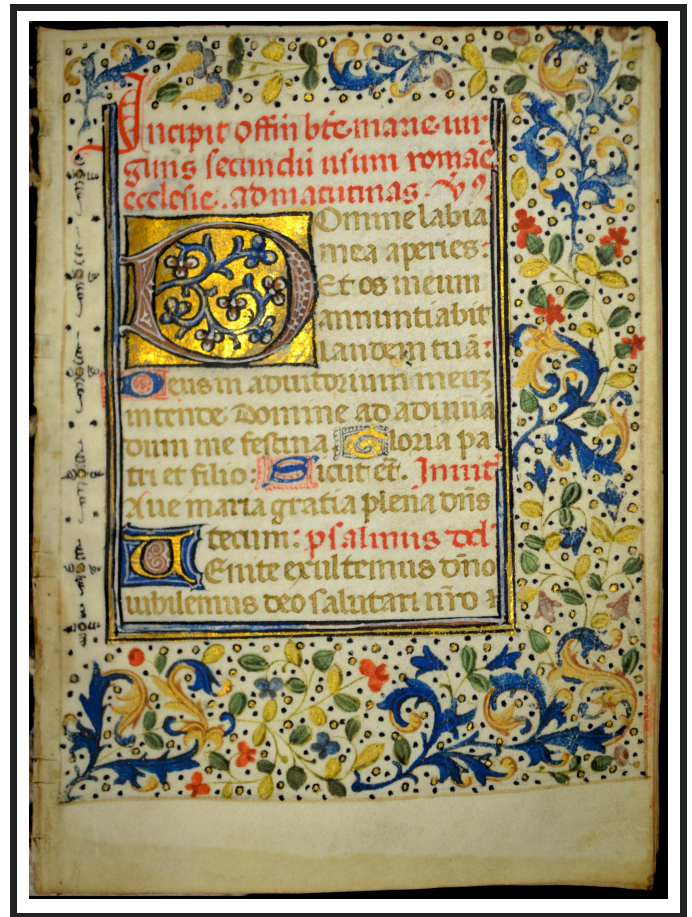 Incipit offin bte marie uir
ginis secundū usum romae
ecclesie. ad matutinas. V9.
Domine labia
mea aperies:
Et os meum
annuntiabit
laudem tuā:
Deus in adiutorium meuz
intende Domine ad adiuua
dum me festina Gloria pa
tri et filio: Sicut et. Inuit
Aue maria gratia plena dn̄s
tecum: psalmus del
Uenite exultemus dn̄o
iubilemus deo salutari nr̄o